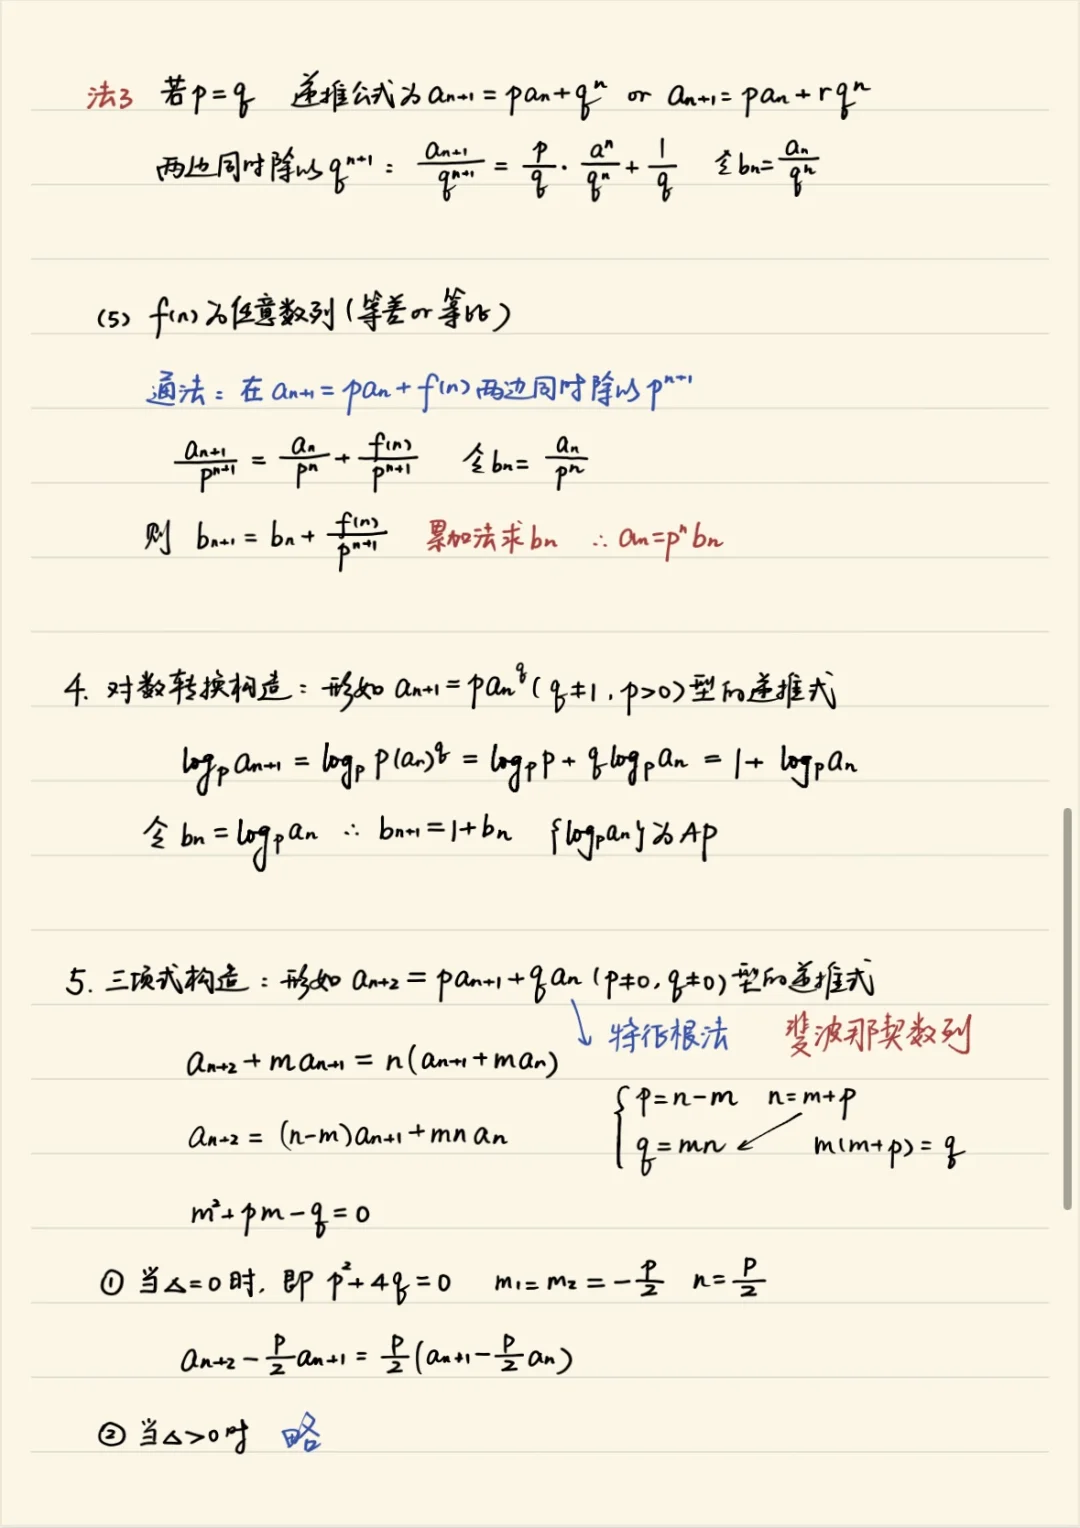 法3 若p=q 递推公式为 aₙ₊₁=paₙ+qⁿ or aₙ₊₁=paₙ+rqⁿ
两边同时除以qⁿ⁺¹: aₙ₊₁/qⁿ⁺¹ = p/q · aⁿ/qⁿ + 1/q 令bₙ=aₙ/qⁿ
(5) f(n)为任意数列(等差or等比)
通法:在aₙ₊₁=paₙ+f(n)两边同时除以pⁿ⁺¹
aₙ₊₁/pⁿ⁺¹ = aₙ/pⁿ + f(n)/pⁿ⁺¹ 令bₙ=aₙ/pⁿ
则 bₙ₊₁=bₙ+f(n)/pⁿ⁺¹ 累加法求bₙ ∴aₙ=pⁿbₙ
4. 对数转换构造:形如 aₙ₊₁=paₙ^q(q≠1,p>0)型的递推式
logₚaₙ₊₁=logₚp(aₙ)^q=logₚp+qlogₚaₙ=1+logₚaₙ
令bₙ=logₚaₙ ∴bₙ₊₁=1+bₙ {logₚaₙ}为AP
5. 三项式构造:形如 aₙ₊₂=paₙ₊₁+qaₙ(p≠0,q≠0)型的递推式
↘特征根法 斐波那契数列
aₙ₊₂+maₙ₊₁=n(aₙ₊₁+maₙ)
{p=n-m n=m+p
aₙ₊₂=(n-m)aₙ₊₁+mnaₙ
q=mn↙ m(m+p)=q
m²+pm-q=0
① 当△=0时,即p²+4q=0 m₁=m₂=-p/2 n=p/2
aₙ₊₂-p/2aₙ₊₁=p/2(aₙ₊₁-p/2aₙ)
② 当△>0时 略